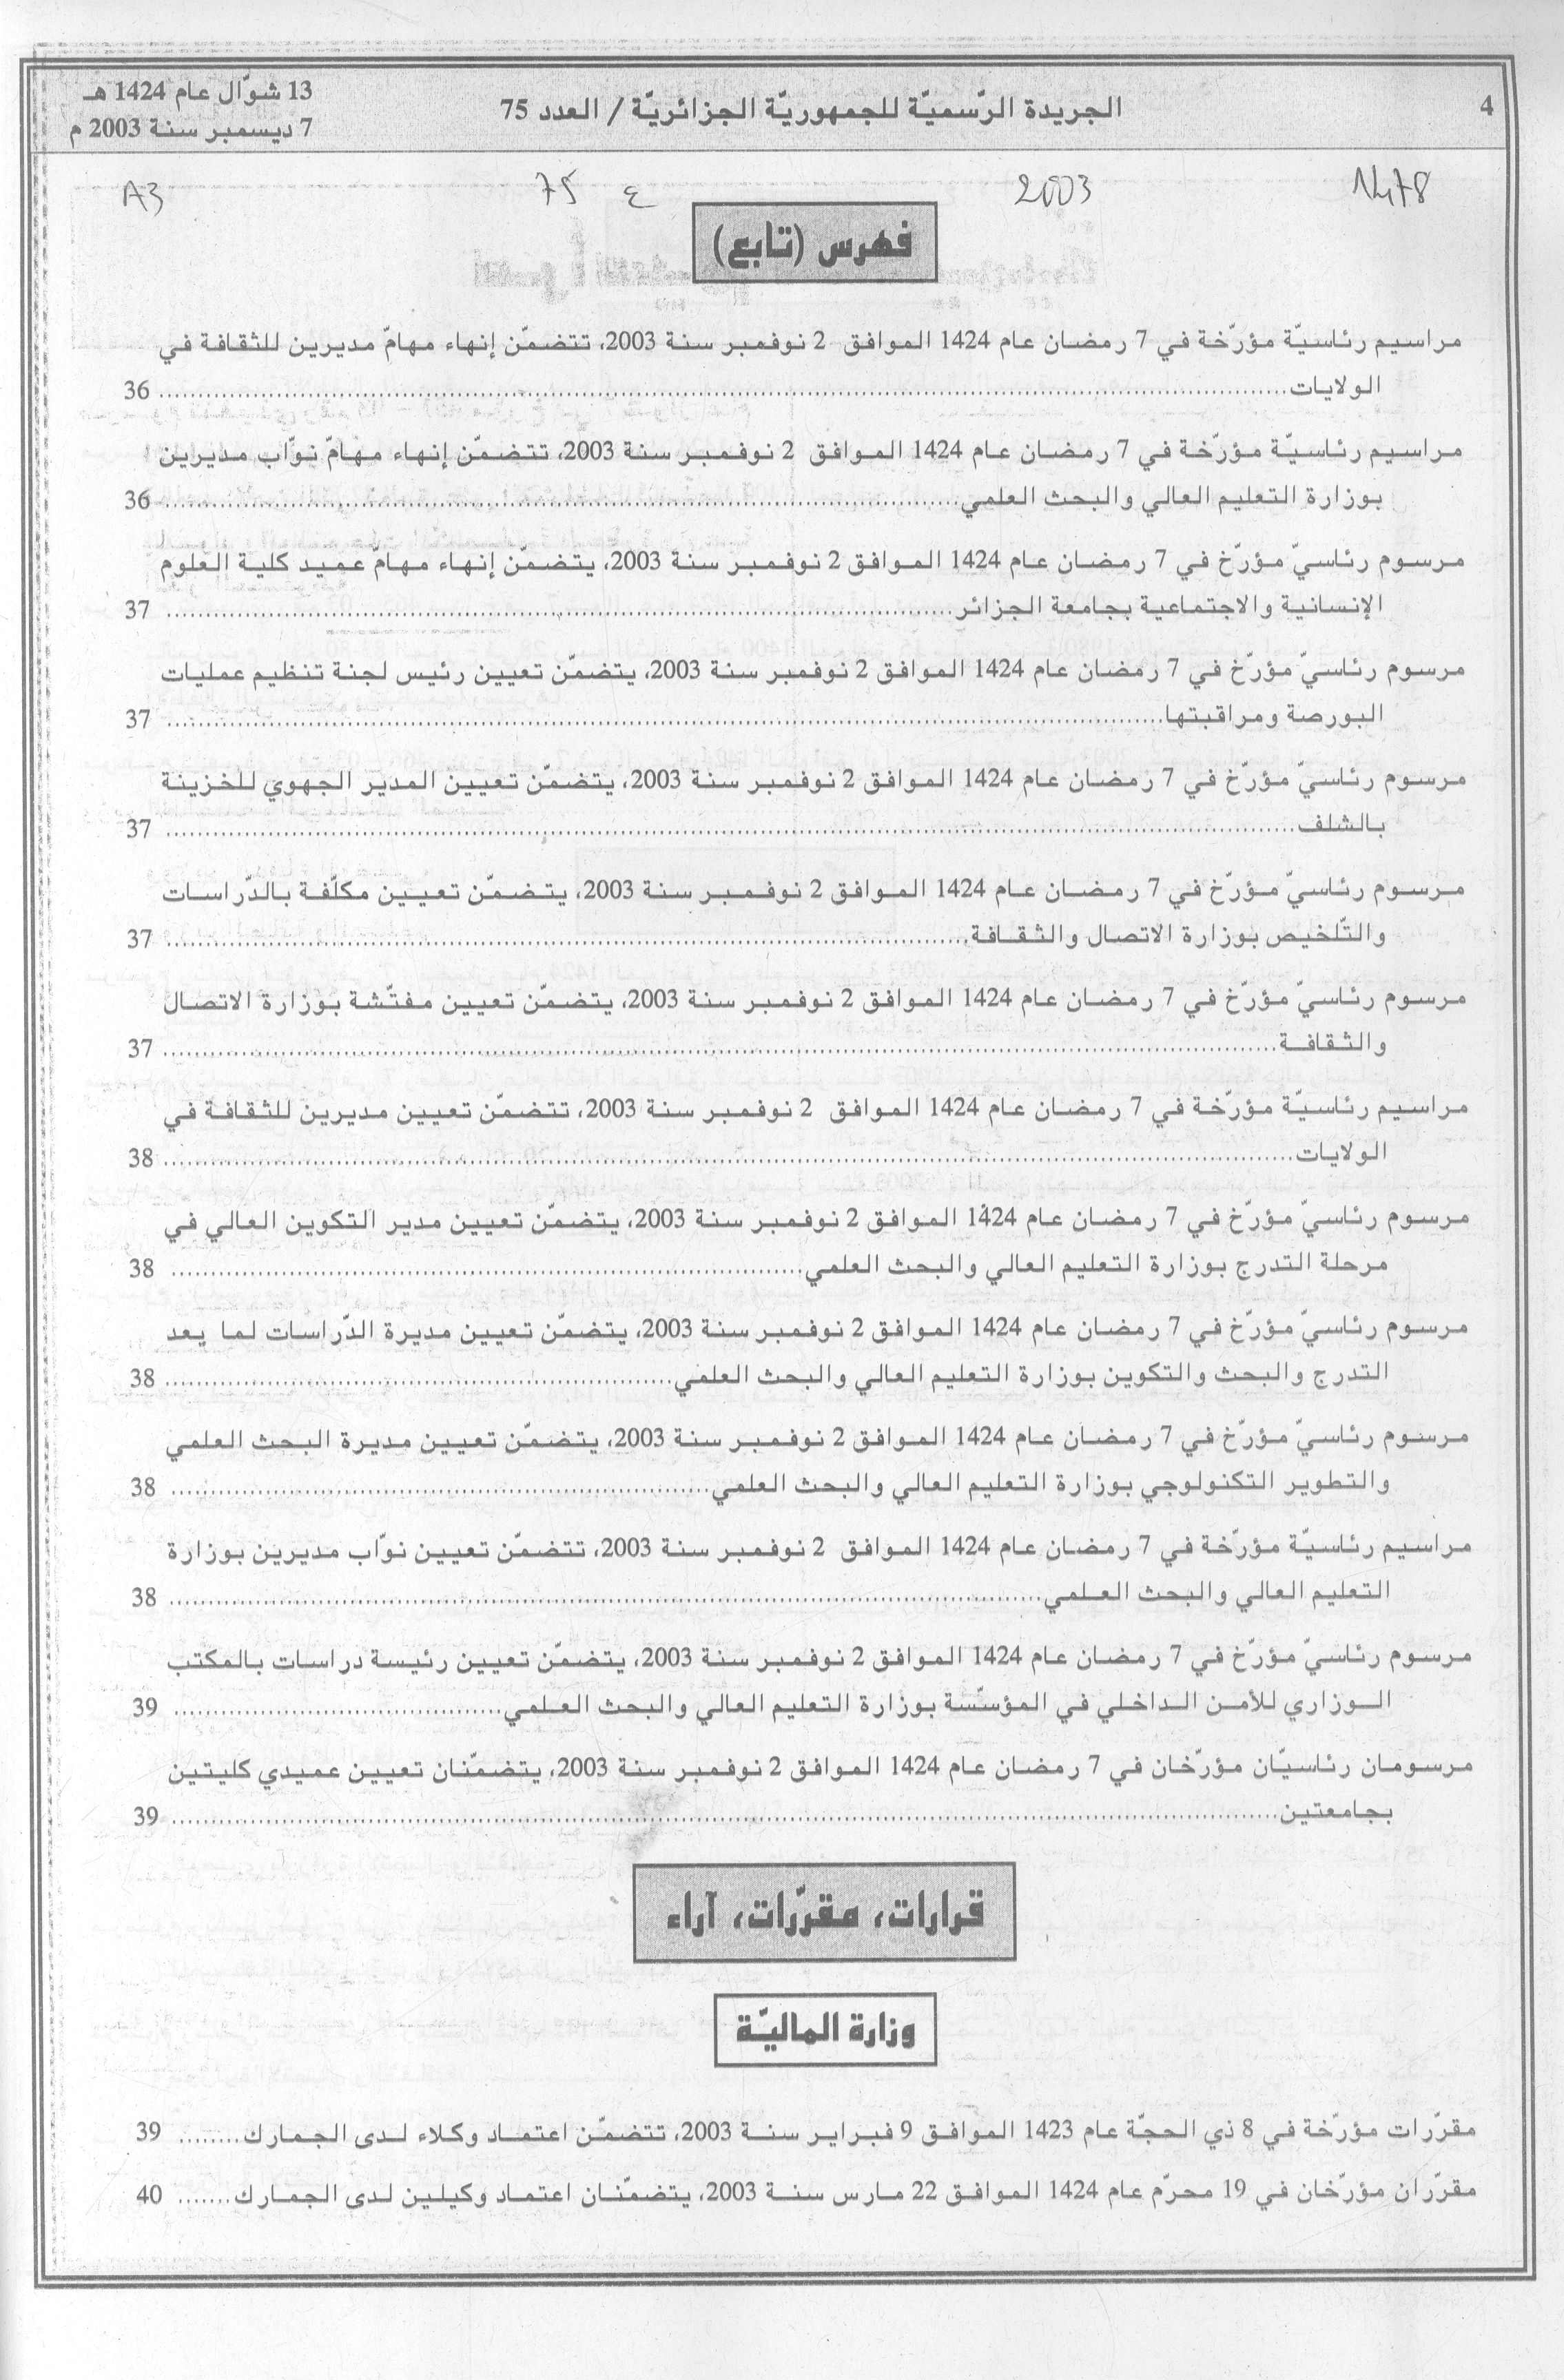 4
الجريدة الرّسميّة للجمهوريّة الجزائريّة / العدد 75
13 شوّال عام 1424 هـ
7 ديسمبر سنة 2003 م
1478 2003 ع 75 A3
فهرس (تابع)
مراسيم رئاسيّة مؤرّخة في 7 رمضان عام 1424 الموافق 2 نوفمبر سنة 2003، تتضمّن إنهاء مهامّ مديرين للثقافة في
الولايات........................ 36
مراسيم رئاسيّة مؤرّخة في 7 رمضان عام 1424 الموافق 2 نوفمبر سنة 2003، تتضمّن إنهاء مهامّ نوّاب مديرين
بوزارة التعليم العالي والبحث العلمي........................ 36
مرسوم رئاسيّ مؤرّخ في 7 رمضان عام 1424 الموافق 2 نوفمبر سنة 2003، يتضمّن إنهاء مهامّ عميد كلية العلوم
الإنسانية والاجتماعية بجامعة الجزائر........................ 37
مرسوم رئاسيّ مؤرّخ في 7 رمضان عام 1424 الموافق 2 نوفمبر سنة 2003، يتضمّن تعيين رئيس لجنة تنظيم عمليات
البورصة ومراقبتها........................ 37
مرسوم رئاسيّ مؤرّخ في 7 رمضان عام 1424 الموافق 2 نوفمبر سنة 2003، يتضمّن تعيين المدير الجهوي للخزينة
بالشلف........................ 37
مرسوم رئاسيّ مؤرّخ في 7 رمضان عام 1424 الموافق 2 نوفمبر سنة 2003، يتضمّن تعيين مكلّفة بالدّراسات
والتّلخيص بوزارة الاتصال والثقافة........................ 37
مرسوم رئاسيّ مؤرّخ في 7 رمضان عام 1424 الموافق 2 نوفمبر سنة 2003، يتضمّن تعيين مفتّشة بوزارة الاتصال
والثقافة........................ 37
مراسيم رئاسيّة مؤرّخة في 7 رمضان عام 1424 الموافق 2 نوفمبر سنة 2003، تتضمّن تعيين مديرين للثقافة في
الولايات........................ 38
مرسوم رئاسيّ مؤرّخ في 7 رمضان عام 1424 الموافق 2 نوفمبر سنة 2003، يتضمّن تعيين مدير التكوين العالي في
مرحلة التدرج بوزارة التعليم العالي والبحث العلمي........................ 38
مرسوم رئاسيّ مؤرّخ في 7 رمضان عام 1424 الموافق 2 نوفمبر سنة 2003، يتضمّن تعيين مديرة الدّراسات لما يعد
التدرج والبحث والتكوين بوزارة التعليم العالي والبحث العلمي........................ 38
مرسوم رئاسيّ مؤرّخ في 7 رمضان عام 1424 الموافق 2 نوفمبر سنة 2003، يتضمّن تعيين مديرة البحث العلمي
والتطوير التكنولوجي بوزارة التعليم العالي والبحث العلمي........................ 38
مراسيم رئاسيّة مؤرّخة في 7 رمضان عام 1424 الموافق 2 نوفمبر سنة 2003، تتضمّن تعيين نوّاب مديرين بوزارة
التعليم العالي والبحث العلمي........................ 38
مرسوم رئاسيّ مؤرّخ في 7 رمضان عام 1424 الموافق 2 نوفمبر سنة 2003، يتضمّن تعيين رئيسة دراسات بالمكتب
الوزاري للأمن الداخلي في المؤسّسة بوزارة التعليم العالي والبحث العلمي........................ 39
مرسومان رئاسيّان مؤرّخان في 7 رمضان عام 1424 الموافق 2 نوفمبر سنة 2003، يتضمّنان تعيين عميدي كليتين
بجامعتين........................ 39
قرارات، مقرّرات، آراء
وزارة الماليّة
مقرّرات مؤرّخة في 8 ذي الحجّة عام 1423 الموافق 9 فبراير سنة 2003، تتضمّن اعتماد وكلاء لدى الجمارك........ 39
مقرّران مؤرّخان في 19 محرّم عام 1424 الموافق 22 مارس سنة 2003، يتضمّنان اعتماد وكيلين لدى الجمارك....... 40